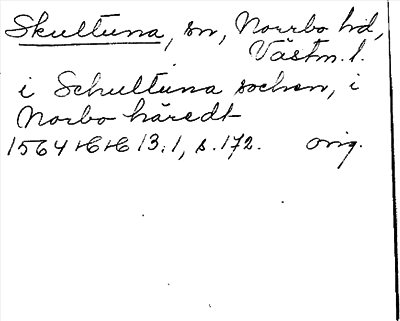 Skultuna, sn, Norrbo hd,
Västm. l.
i Schultuna sochen, i
Norbo häredt
1564 HH 13:1, s. 172. orig.